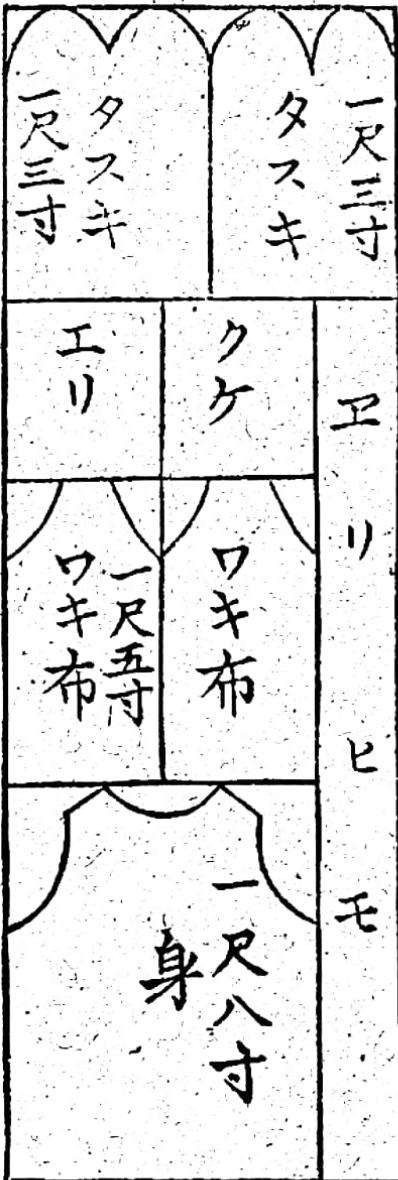 一尺三寸
タスキ
タスキ
一尺三寸
ヱリヒモ
クケ
エリ
ワキ布
一尺五寸
ワキ布
一尺八寸
身